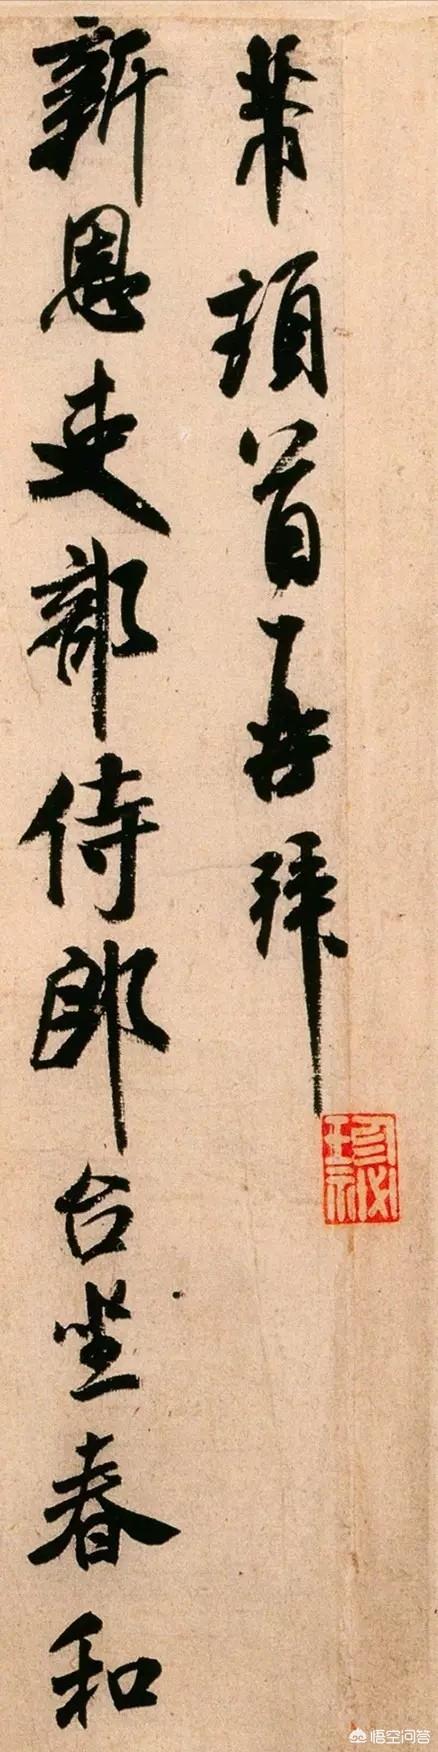 芾頓首再拜
新恩吏部侍郎台坐春和
珍祕
悟空问答